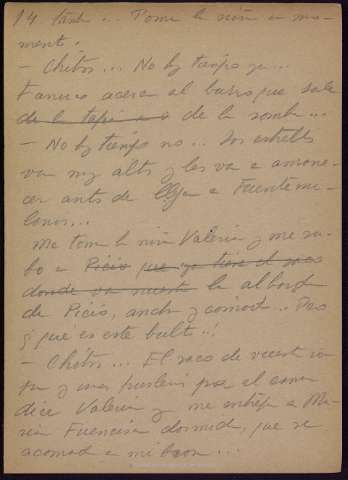 14 tarde... Tome la niña un mo-
mento.
— Chitón... No hay tiempo ya...
Fanuco acerca el burro que sale
de la tapia a de la sombra...
— No hay tiempo no... Las estrellas
van muy altas y les va a amane-
cer antes de llegar a Fuentemi-
lanos...
Me toma la niña Valeria y me su-
bo a Picio que ya tiene el saco
donde va nuestr la albarda
de Picio, ancha y cómoda... Pero
¿y qué es este bulto...!
— Chitón... El saco de vuestra ro-
pa y unas para el camino
dice Valeria y me entrega a Ma-
ría Fuencisla dormida, que se
acomoda a mi brazo...